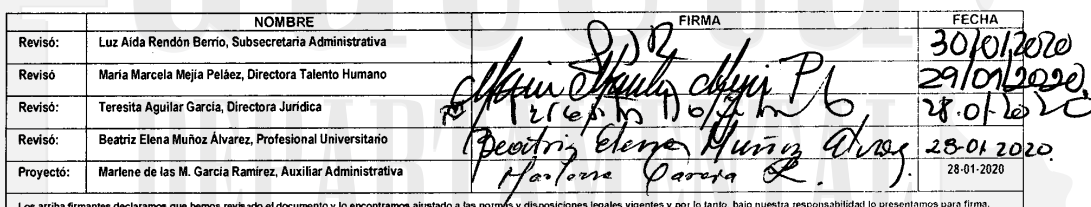 NOMBRE FIRMA FECHA
Revisó: Luz Aída Rendón Berrío, Subsecretaria Administrativa 30/01/2020
Revisó María Marcela Mejía Peláez, Directora Talento Humano María Marcela Mejía P 29/01/2020
Revisó: Teresita Aguilar García, Directora Jurídica 28-01-2020
Revisó: Beatriz Elena Muñoz Álvarez, Profesional Universitario Beatriz Elena Muñoz Alvarez 28-01 2020
Proyectó: Marlene de las M. García Ramírez, Auxiliar Administrativa Marlene Garcia R. 28-01-2020
Los arriba firmantes declaramos que hemos revisado el documento y lo encontramos ajustado a las normas y disposiciones legales vigentes y por lo tanto, bajo nuestra responsabilidad lo presentamos para firma.